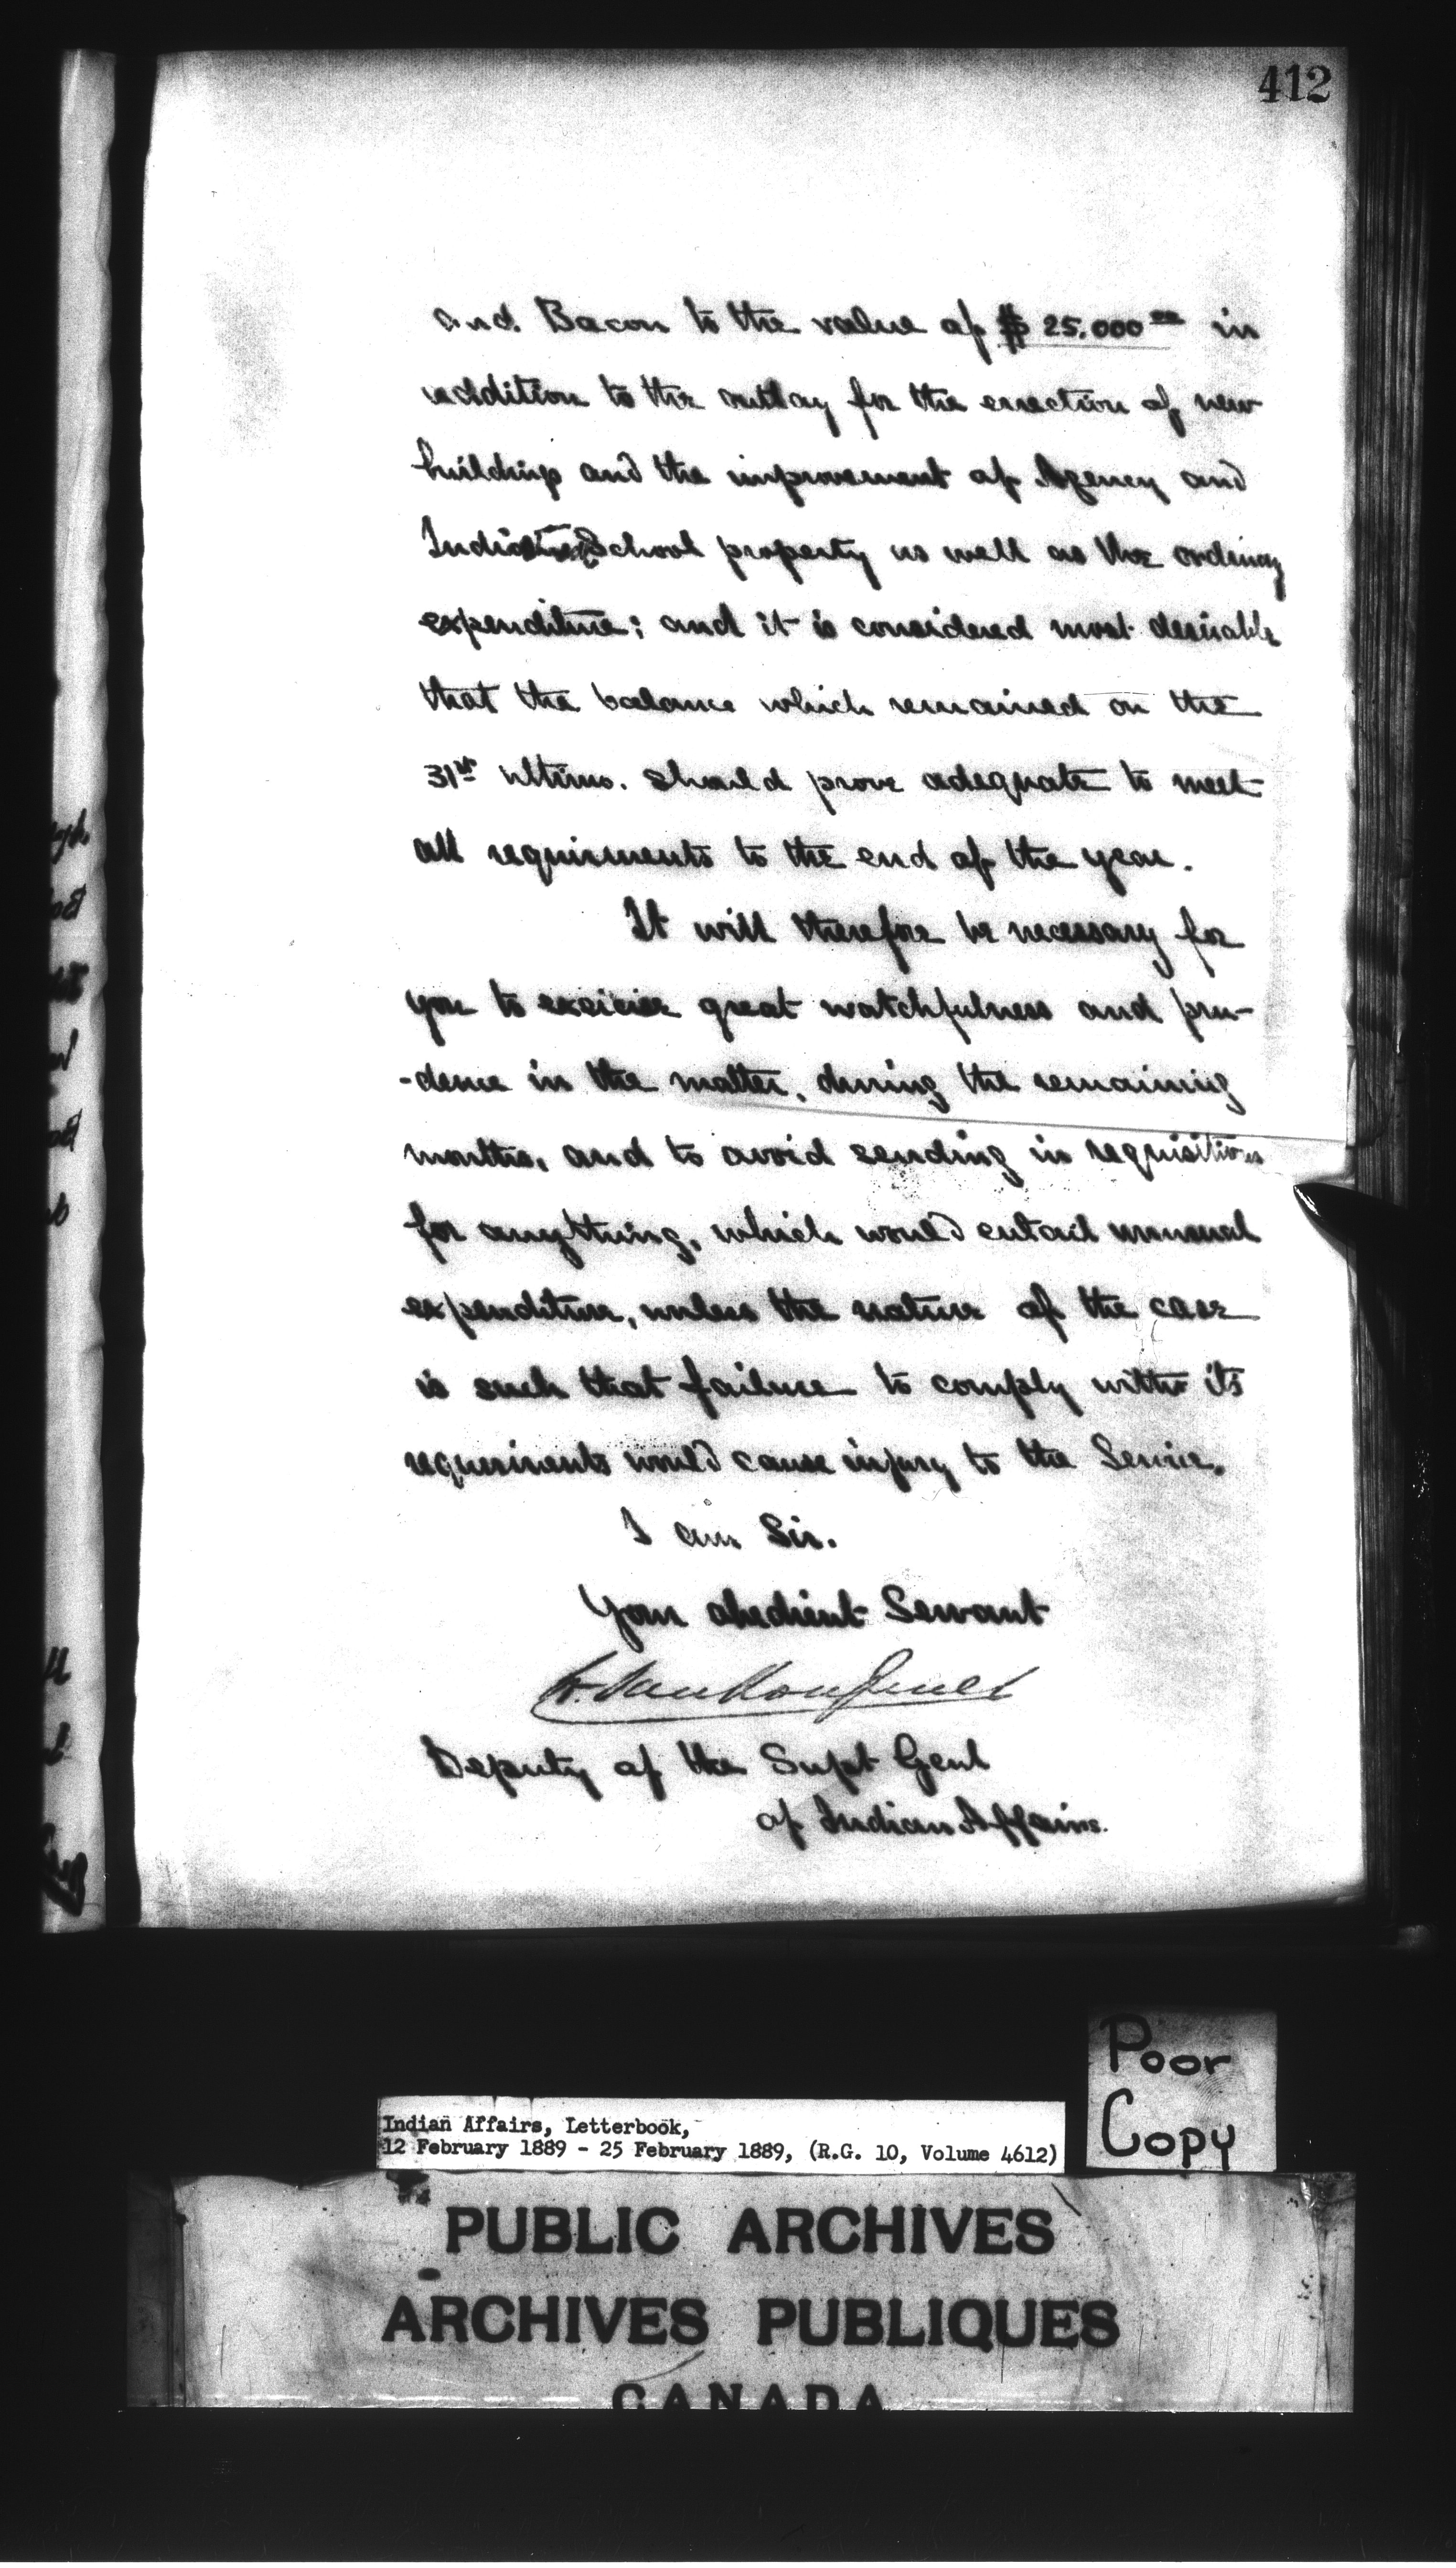 412
and Bacon to the value of $25,000 00 in
addition to the outlay for the errection of new
buildings and the improvement of Agency and
School property as well as the ordinary
expenditure; and it is considered most desirable
that the balance which remained on the
31st ultimo. should prove adequate to meet
all requirments to the end of the year.
It will therefore be necessary for
you to exercise great watchfulness and pru-
-dence in the matter, during the remaining
months, and to avoid sending in requisitions
for anything, which would entail unusual
expenditure, unless the nature of the case
is such that failure to comply with its
requirments would cause injury to the Service.
I am Sir.
Your obedient Servant
L. VanKoughnet
Deputy of the Supt Genl
of Indian Affairs.
Poor
Copy
Indian Affairs, Letterbook,
12 February 1889 - 25 February 1889, (R.G. 10, Volume 4612)
PUBLIC ARCHIVES
ARCHIVES PUBLIQUES
CANADA